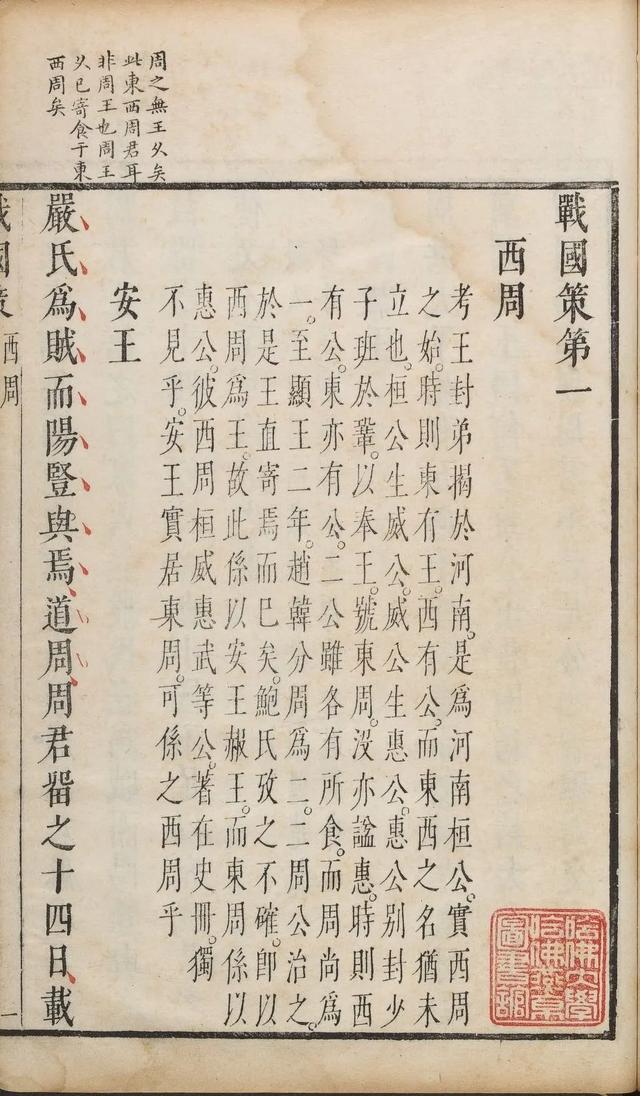 周之無王久矣
此東西周君耳
非周王也周王
久已寄食于東
西周矣
戰國策第一
西周
考王封弟揭於河南。是爲河南桓公。實西周
之始。時則東有王。西有公。而東西之名猶未
立也。桓公生威公。威公生惠公。惠公別封少
子班於鞏。以奉王。號東周。沒亦謚惠。時則西
有公。東亦有公。二公雖各有所食。而周尚爲
一。至顯王二年。趙韓分周爲二。二周公治之。
於是王直寄焉而已矣。鮑氏攷之不確。卽以
西周爲王。故此係以安王赧王。而東周係以
惠公。彼西周桓威惠武等公。著在史冊。獨
不見乎。安王實居東周。可係之西周乎
安王
嚴氏爲賊而陽豎與焉道周周君畱之十四日載
戰國策 西周 一
哈佛大學
哈佛燕京
圖書館